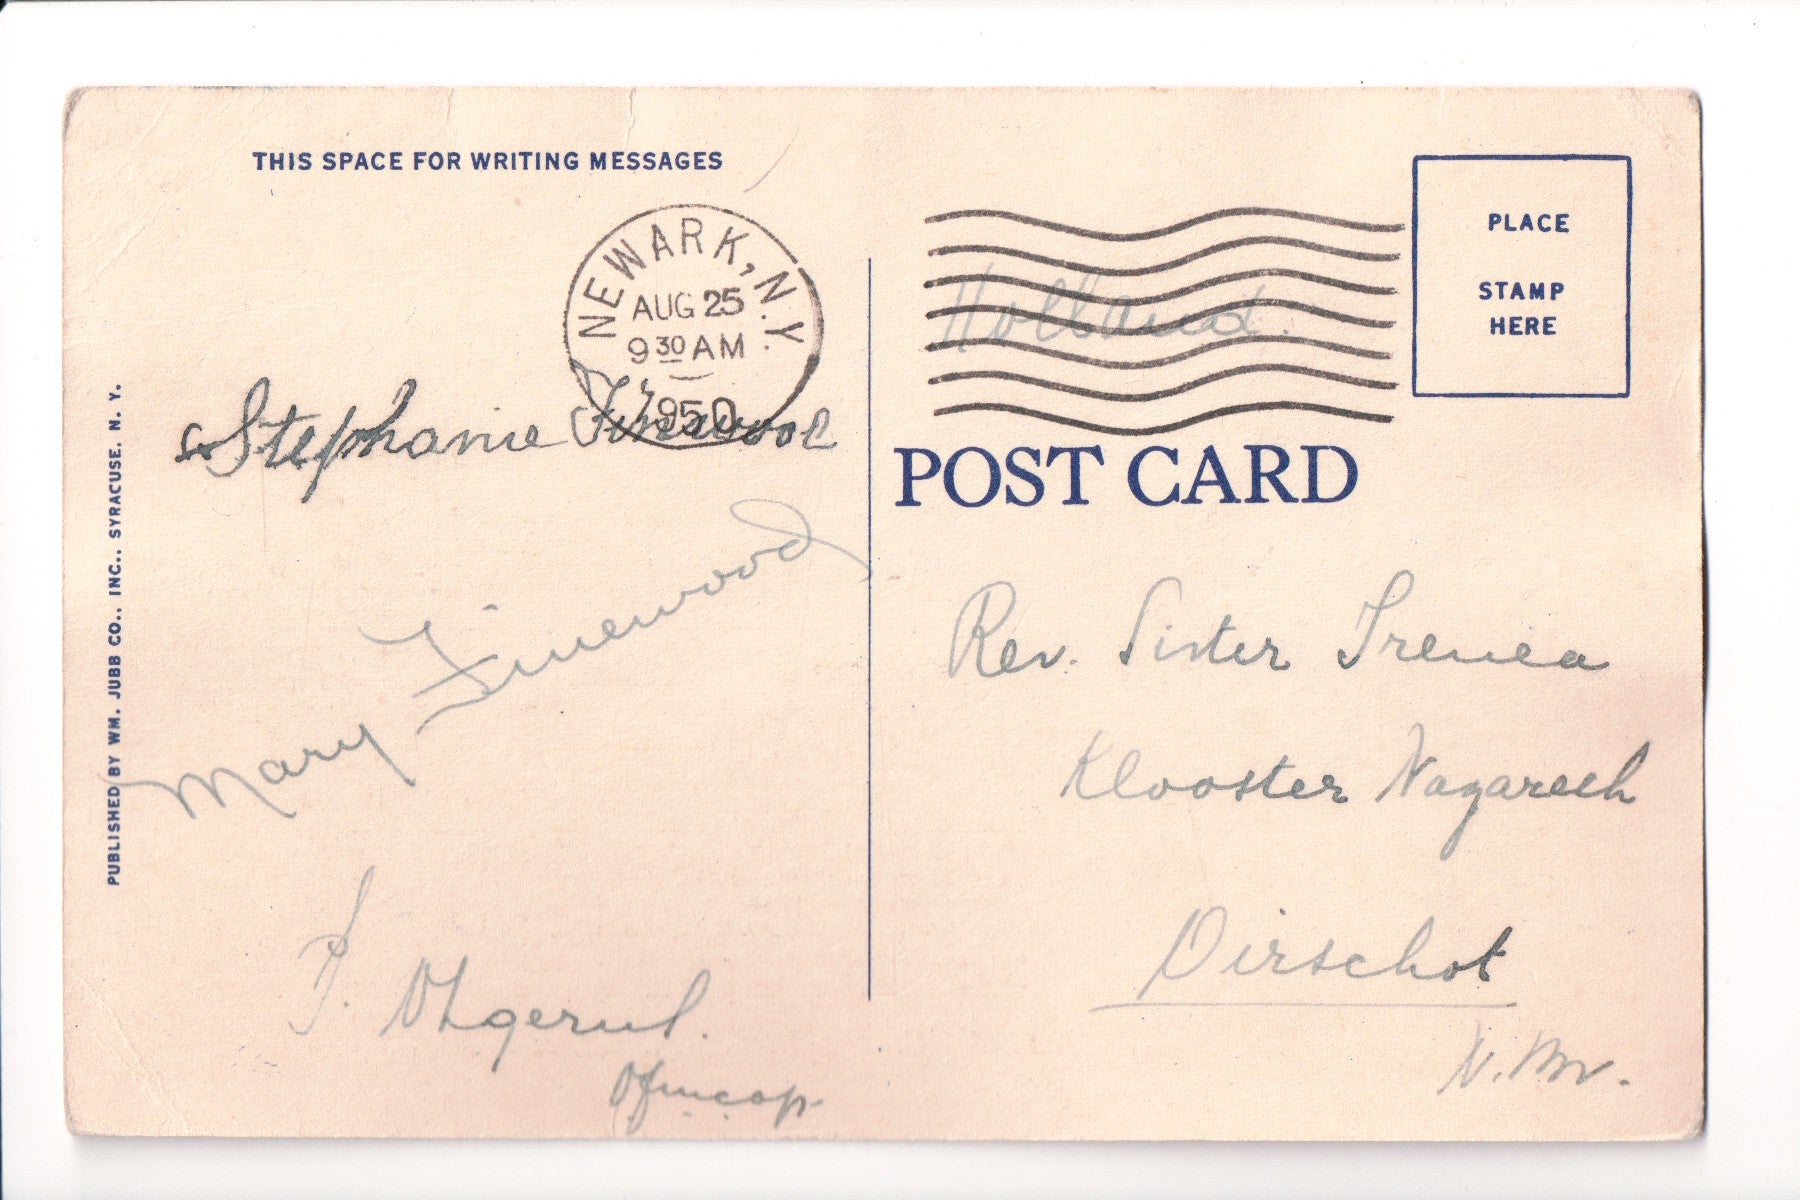 THIS SPACE FOR WRITING MESSAGES
NEWARK, N.Y.
AUG 25
9 30 AM
1950
Stephanie Finewood
Mary Finewood
PUBLISHED BY WM. JUBB CO., INC., SYRACUSE, N. Y.
PLACE
STAMP
HERE
Holland.
POST CARD
Rev. Sister Irenea
Klooster Nazareth
Oirschot